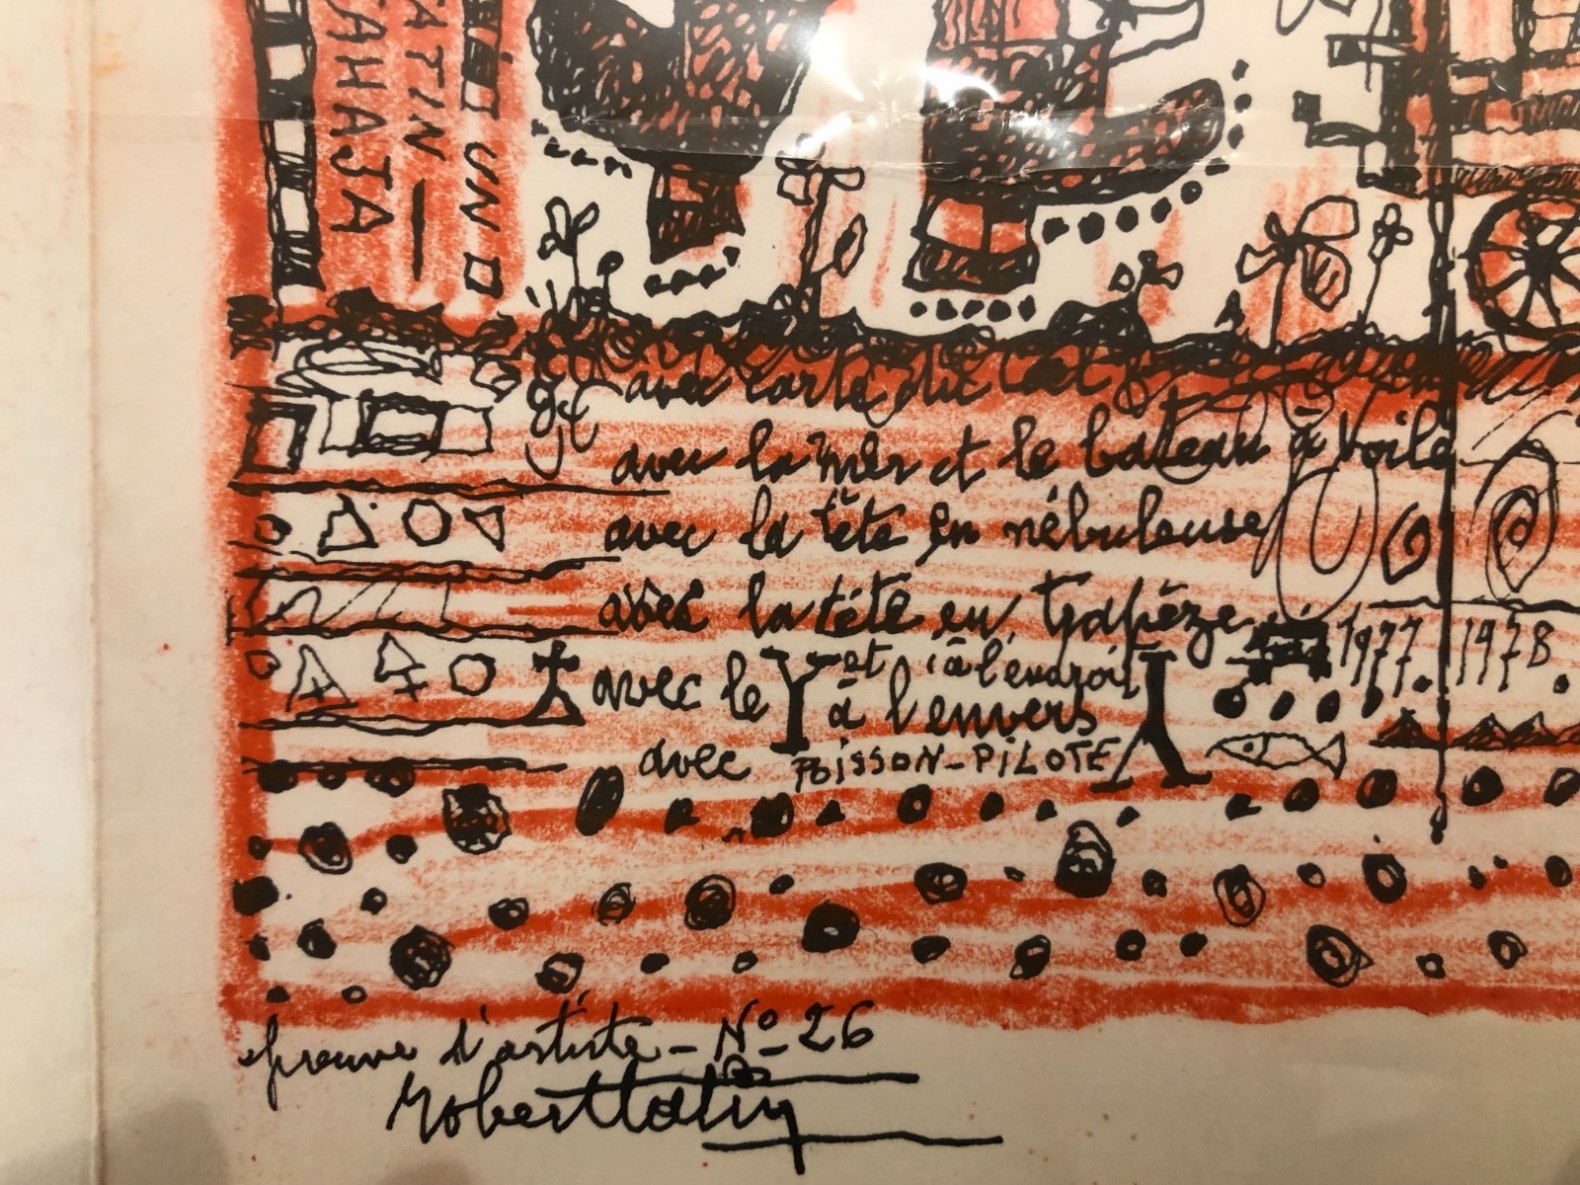 ATIN —
AHAJA
UN
avec carte du ciel
avec la mer et le bateau à voile
avec la tête en nébuleuse
avec la tête en trapèze 1977. 1978
avec le Y et à l'endroit
à l'envers
avec POISSON-PILOTE
epreuve d'artiste - No 26
Robert Tatin